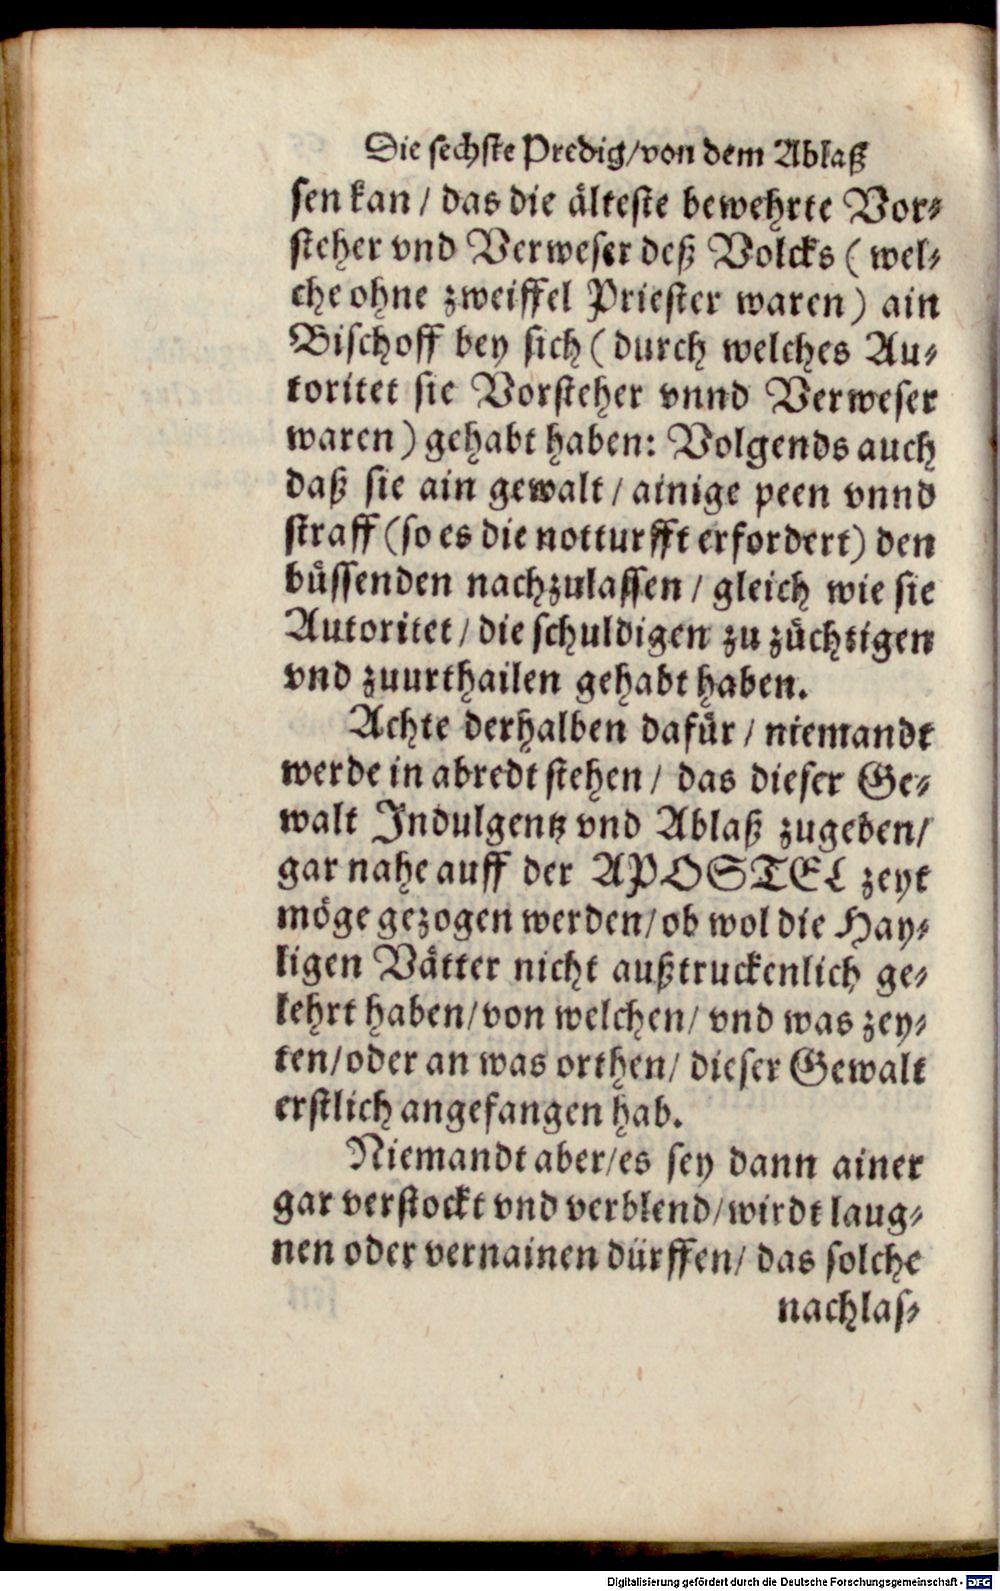 Die sechste Predig/von dem Ablaß
sen kan / das die älteste bewehrte Vor-
steher vnd Verweser deß Volcks ( wel-
che ohne zweiffel Priester waren ) ain
Bischoff bey sich ( durch welches Au-
toritet sie Vorsteher vnnd Verweser
waren ) gehabt haben: Volgends auch
daß sie ain gewalt / ainige peen vnnd
straff (so es die notturfft erfordert) den
büssenden nachzulassen / gleich wie sie
Autoritet / die schuldigen zu züchtigen
vnd zuurthailen gehabt haben.
Achte derhalben dafür / niemandt
werde in abredt stehen / das dieser Ge-
walt Indulgentz vnd Ablaß zugeben/
gar nahe auff der APOSTEL zeyt
möge gezogen werden/ob wol die Hay-
ligen Vätter nicht außtruckenlich ge-
lehrt haben/von welchen/ vnd was zey-
ten/oder an was orthen/ dieser Gewalt
erstlich angefangen hab.
Niemandt aber/es sey dann ainer
gar verstockt vnd verblend/wirdt laug-
nen oder vernainen dürffen/ das solche
nachlas-
Digitalisierung gefördert durch die Deutsche Forschungsgemeinschaft - DFG